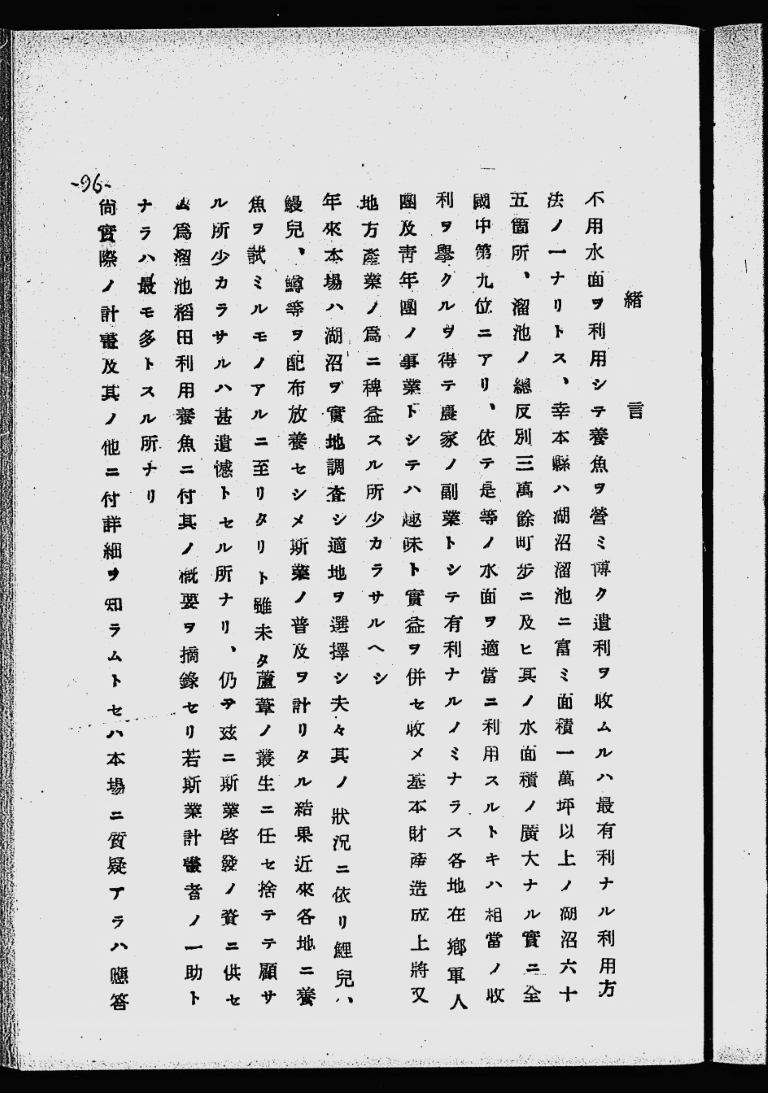 緒言
不用水面ヲ利用シテ養魚ヲ營ミ博ク遺利ヲ收ムルハ最有利ナル利用方
法ノ一ナリトス、幸本縣ハ湖沼溜池ニ富ミ面積一萬坪以上ノ湖沼六十
五箇所、溜池ノ總反別三萬餘町步ニ及ヒ其ノ水面積ノ廣大ナル實ニ全
國中第九位ニアリ、依テ是等ノ水面ヲ適當ニ利用スルトキハ相當ノ收
利ヲ擧クルヲ得テ農家ノ副業トシテ有利ナルノミナラス各地在鄕軍人
團及靑年團ノ事業トシテハ趣味ト實益ヲ併セ收メ基本財產造成上將又
地方產業ノ爲ニ稗益スル所少カラサルヘシ
年來本場ハ湖沼ヲ實地調査シ適地ヲ選擇シ夫々其ノ狀況ニ依リ鯉兒、
鰻兒、鱒等ヲ配布放養セシメ斯業ノ普及ヲ計リタル結果近來各地ニ養
魚ヲ試ミルモノアルニ至リタリト雖未タ蘆葦ノ叢生ニ任セ捨テテ顧サ
ル所少カラサルハ甚遺憾トセル所ナリ、仍テ玆ニ斯業啓發ノ資ニ供セ
ム爲溜池稻田利用養魚ニ付其ノ槪要ヲ摘錄セリ若斯業計畫者ノ一助ト
ナラハ最モ多トスル所ナリ
尙實際ノ計畫及其ノ他ニ付詳細ヲ知ラムトセハ本場ニ質疑アラハ應答
-96-